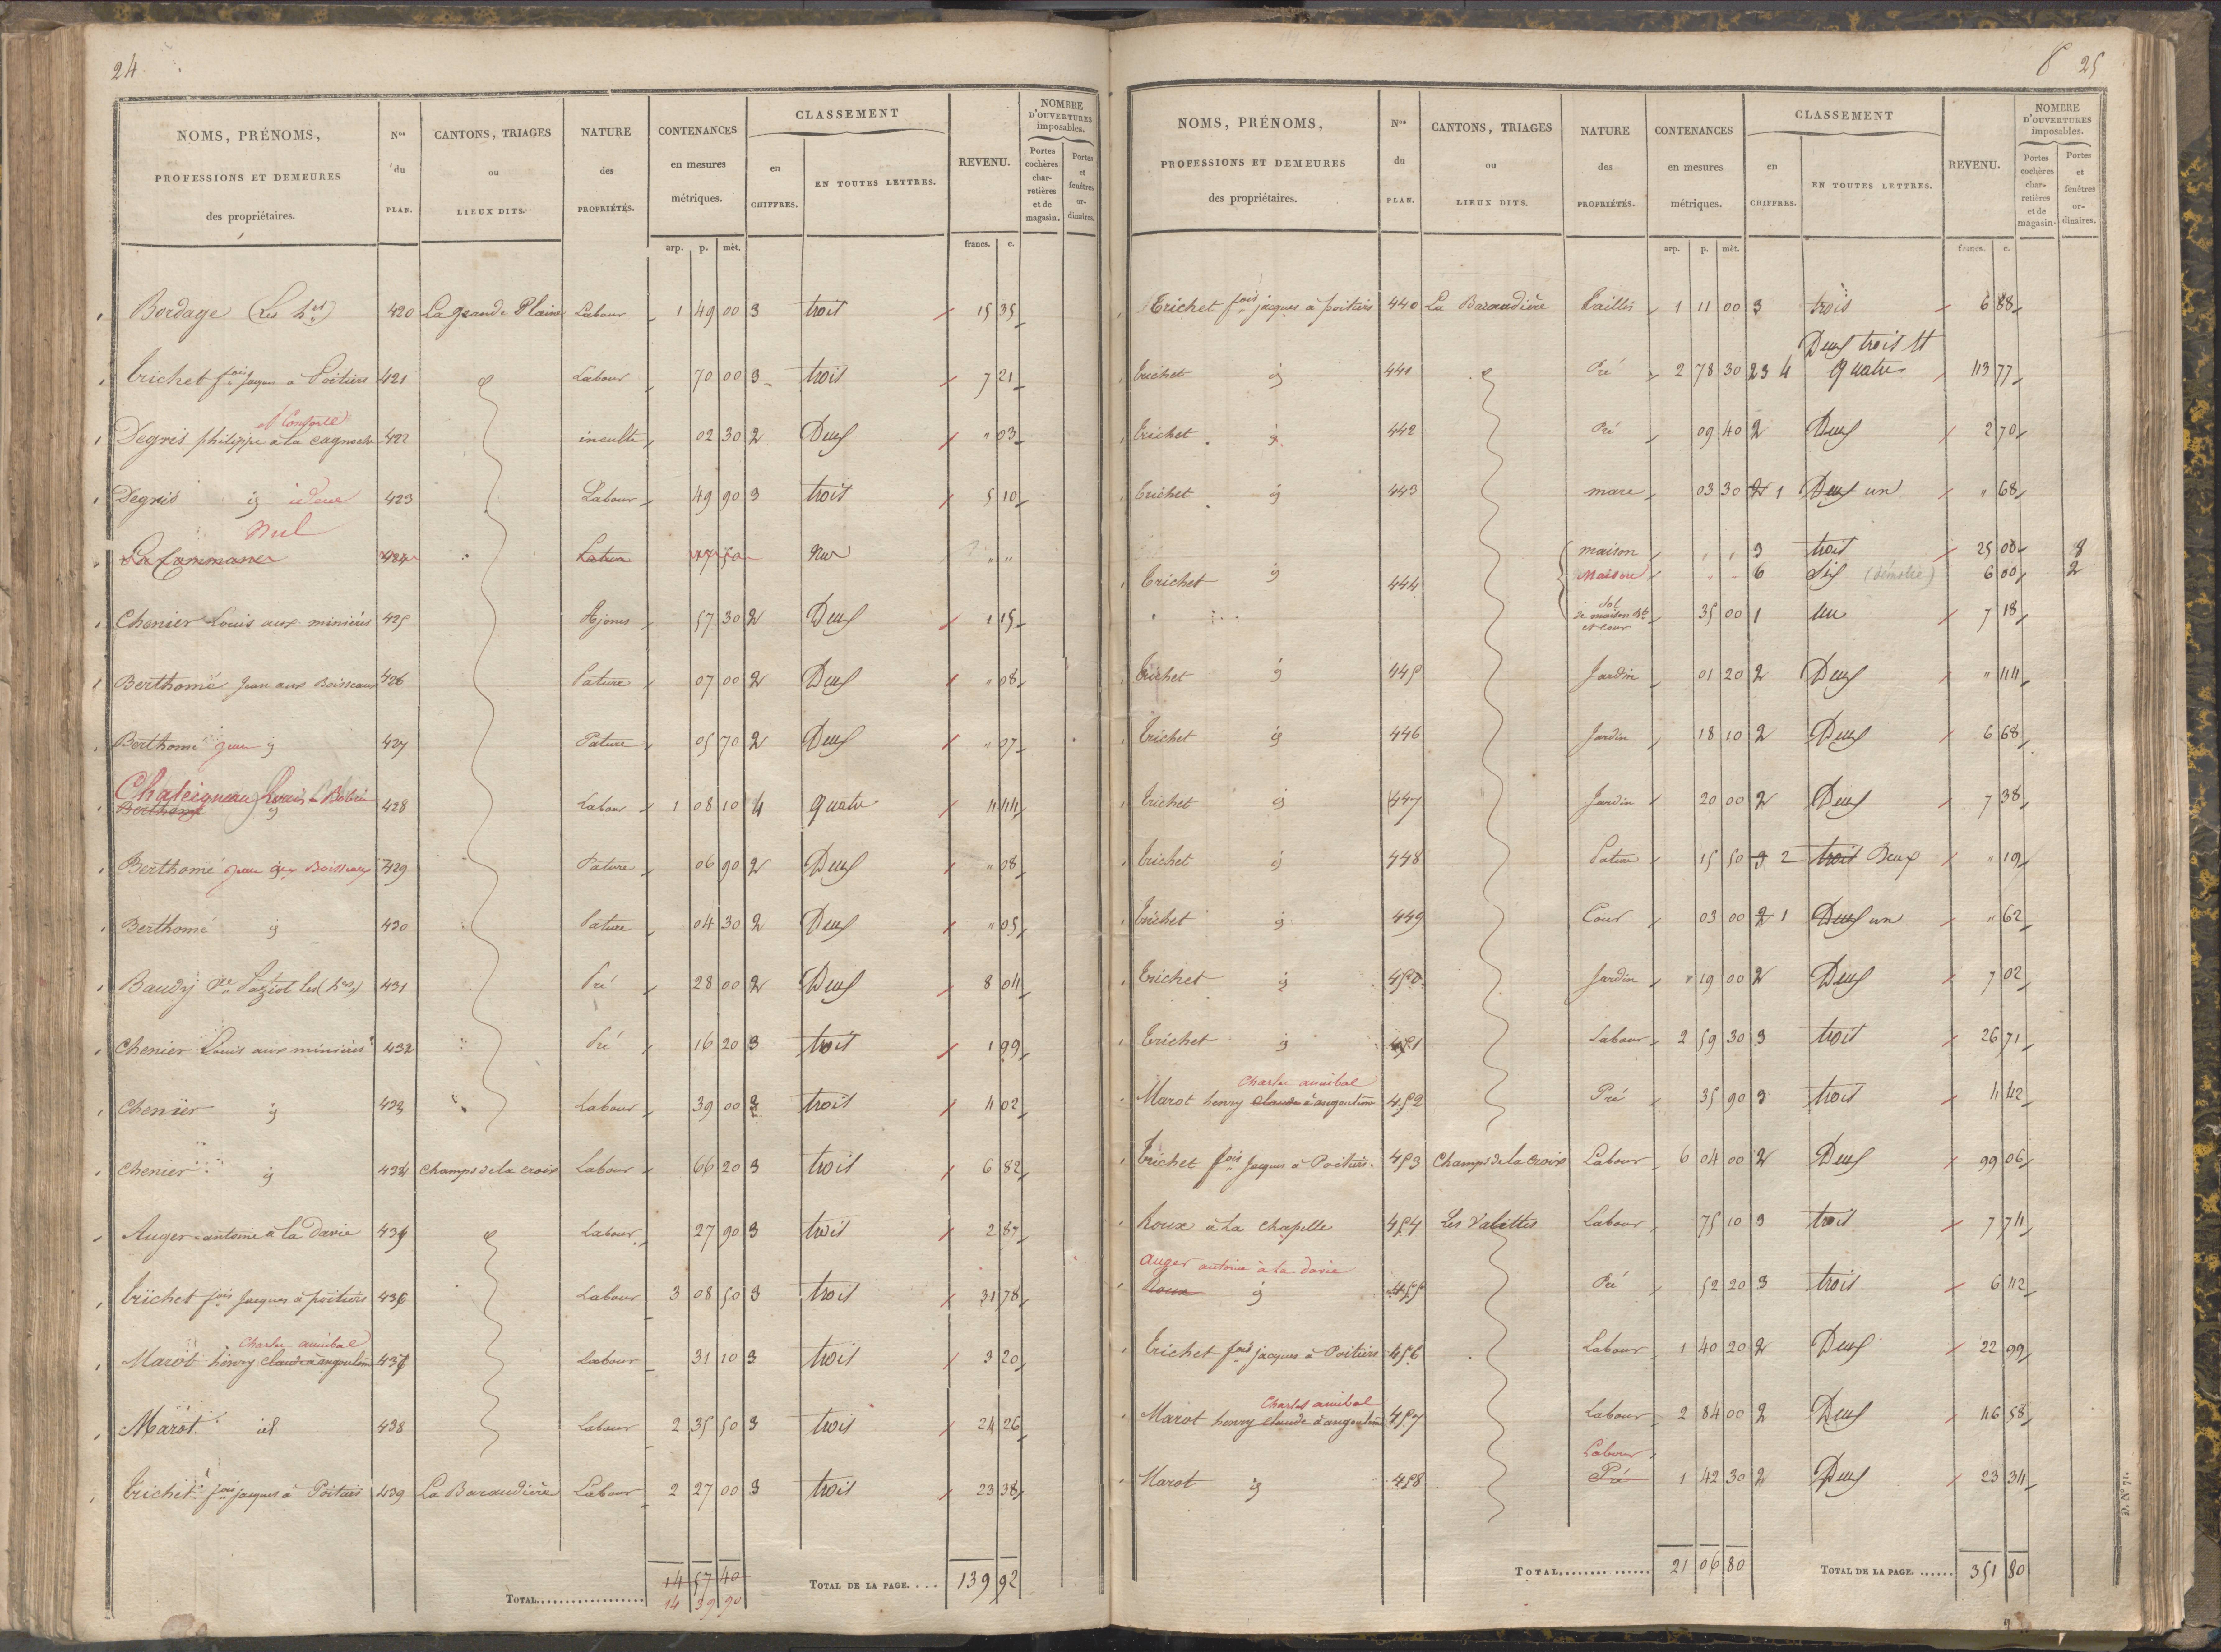 24
NOMS, PRÉNOMS, PROFESSIONS ET DEMEURES des propriétaires. Nos du PLAN. CANTONS, TRIAGES ou LIEUX DITS. NATURE des PROPRIÉTÉS. CONTENANCES en mesures métriques. CLASSEMENT en CHIFFRES. EN TOUTES LETTRES. REVENU. NOMBRE D'OUVERTURES imposables. Portes cochères charretières et de magasin. Portes et fenêtres ordinaires.
arp. p. mèt. francs. c.
Bordage (Les hers) 420 La grande Plaine Labour 1 49 00 3 trois 15 35
Trichet fois Jaques à Poitiers 421 id Labour 70 00 3 trois 7 21
et Consorts
Degris philippe à la 422 inculte 02 30 2 Deux " 03
Degris id idem 423 Labour 49 90 3 trois 5 10
Nul
La Commune 424 17 50 " "
Chenier Louis aux minières 425 Ajoncs 57 30 2 Deux 1 15
Berthomé Jean aux Boisseaux 426 Pature 07 00 2 Deux " 08
Berthomé Jean id 427 Pature 05 70 2 Deux " 07
Chateigneau Louis
Berthomé id 428 Labour 1 08 10 4 quatre 4 44
Berthomé Jean aux Boisseaux 429 Pature 06 90 2 Deux " 08
Berthomé id 430 Pature 04 30 2 Deux " 05
Baudy les (hers) 431 Pré 28 00 2 Deux 8 04
Chenier Louis aux minières 432 Pré 16 20 3 trois 1 99
Chenier id 433 Labour 39 00 3 trois 4 02
Chenier id 434 Champs de la croix Labour 66 20 3 trois 6 82
Auger antoine à la Davie 435 id Labour 27 90 3 trois 2 87
Trichet fois Jacques à poitiers 436 Labour 3 08 50 3 trois 31 78
Charles annibal
Marot henry claude à angoulême 437 Labour 31 10 3 trois 3 20
Marot id 438 Labour 2 35 50 3 trois 24 26
Trichet fois jacques à Poitiers 439 La Baraudière Labour 2 27 00 3 trois 23 38
14 57 40 TOTAL DE LA PAGE.... 139 92
TOTAL.................. 14 39 90
8 25
NOMS, PRÉNOMS, PROFESSIONS ET DEMEURES des propriétaires. Nos du PLAN. CANTONS, TRIAGES ou LIEUX DITS. NATURE des PROPRIÉTÉS. CONTENANCES en mesures métriques. CLASSEMENT en CHIFFRES. EN TOUTES LETTRES. REVENU. NOMBRE D'OUVERTURES imposables. Portes cochères charretières et de magasin. Portes et fenêtres ordinaires.
arp. p. mèt. francs. c.
Trichet fois jacques à poitiers 440 La Baraudière Taillis 1 11 00 3 trois 6 88
Deux trois et
Trichet id 441 id Pré 2 78 30 2 3 4 quatre 113 77
Trichet id 442 Pré 09 40 2 Deux 2 70
Trichet id 443 mare 03 30 2 1 Deux un " 68
maison 3 trois 25 00 8
Trichet id 444 Maison 6 Six (démolie) 6 00 2
Sol de maison Bt et cour 35 00 1 un 7 18
Trichet id 445 Jardin 01 20 2 Deux " 44
Trichet id 446 Jardin 18 10 2 Deux 6 68
Trichet id 447 Jardin 20 00 2 Deux 7 38
Trichet id 448 Pature 15 50 3 2 trois Deux " 19
Trichet id 449 Cour 03 00 2 1 Deux un " 62
Trichet id 450 Jardin 19 00 2 Deux 7 02
Trichet id 451 Labour 2 59 30 3 trois 26 71
Charles annibal
Marot henry claude à angoulême 452 Pré 35 90 3 trois 4 42
Trichet fois Jacques à Poitiers. 453 Champs de la Croix Labour 6 04 00 2 Deux 99 06
Roux à la chapelle 454 Les Valettes Labour 75 10 3 trois 7 74
Auger antoine à la davie
Roux id 455 Pré 52 20 3 trois 6 42
Trichet fois jacques à Poitiers 456 Labour 1 40 20 2 Deux 22 99
Charles annibal
Marot henry claude à angoulême 457 Labour 2 84 00 2 Deux 46 58
Labour
Marot id 458 Pré 1 42 30 2 Deux 23 34
TOTAL.............. 21 06 80 TOTAL DE LA PAGE....... 351 80